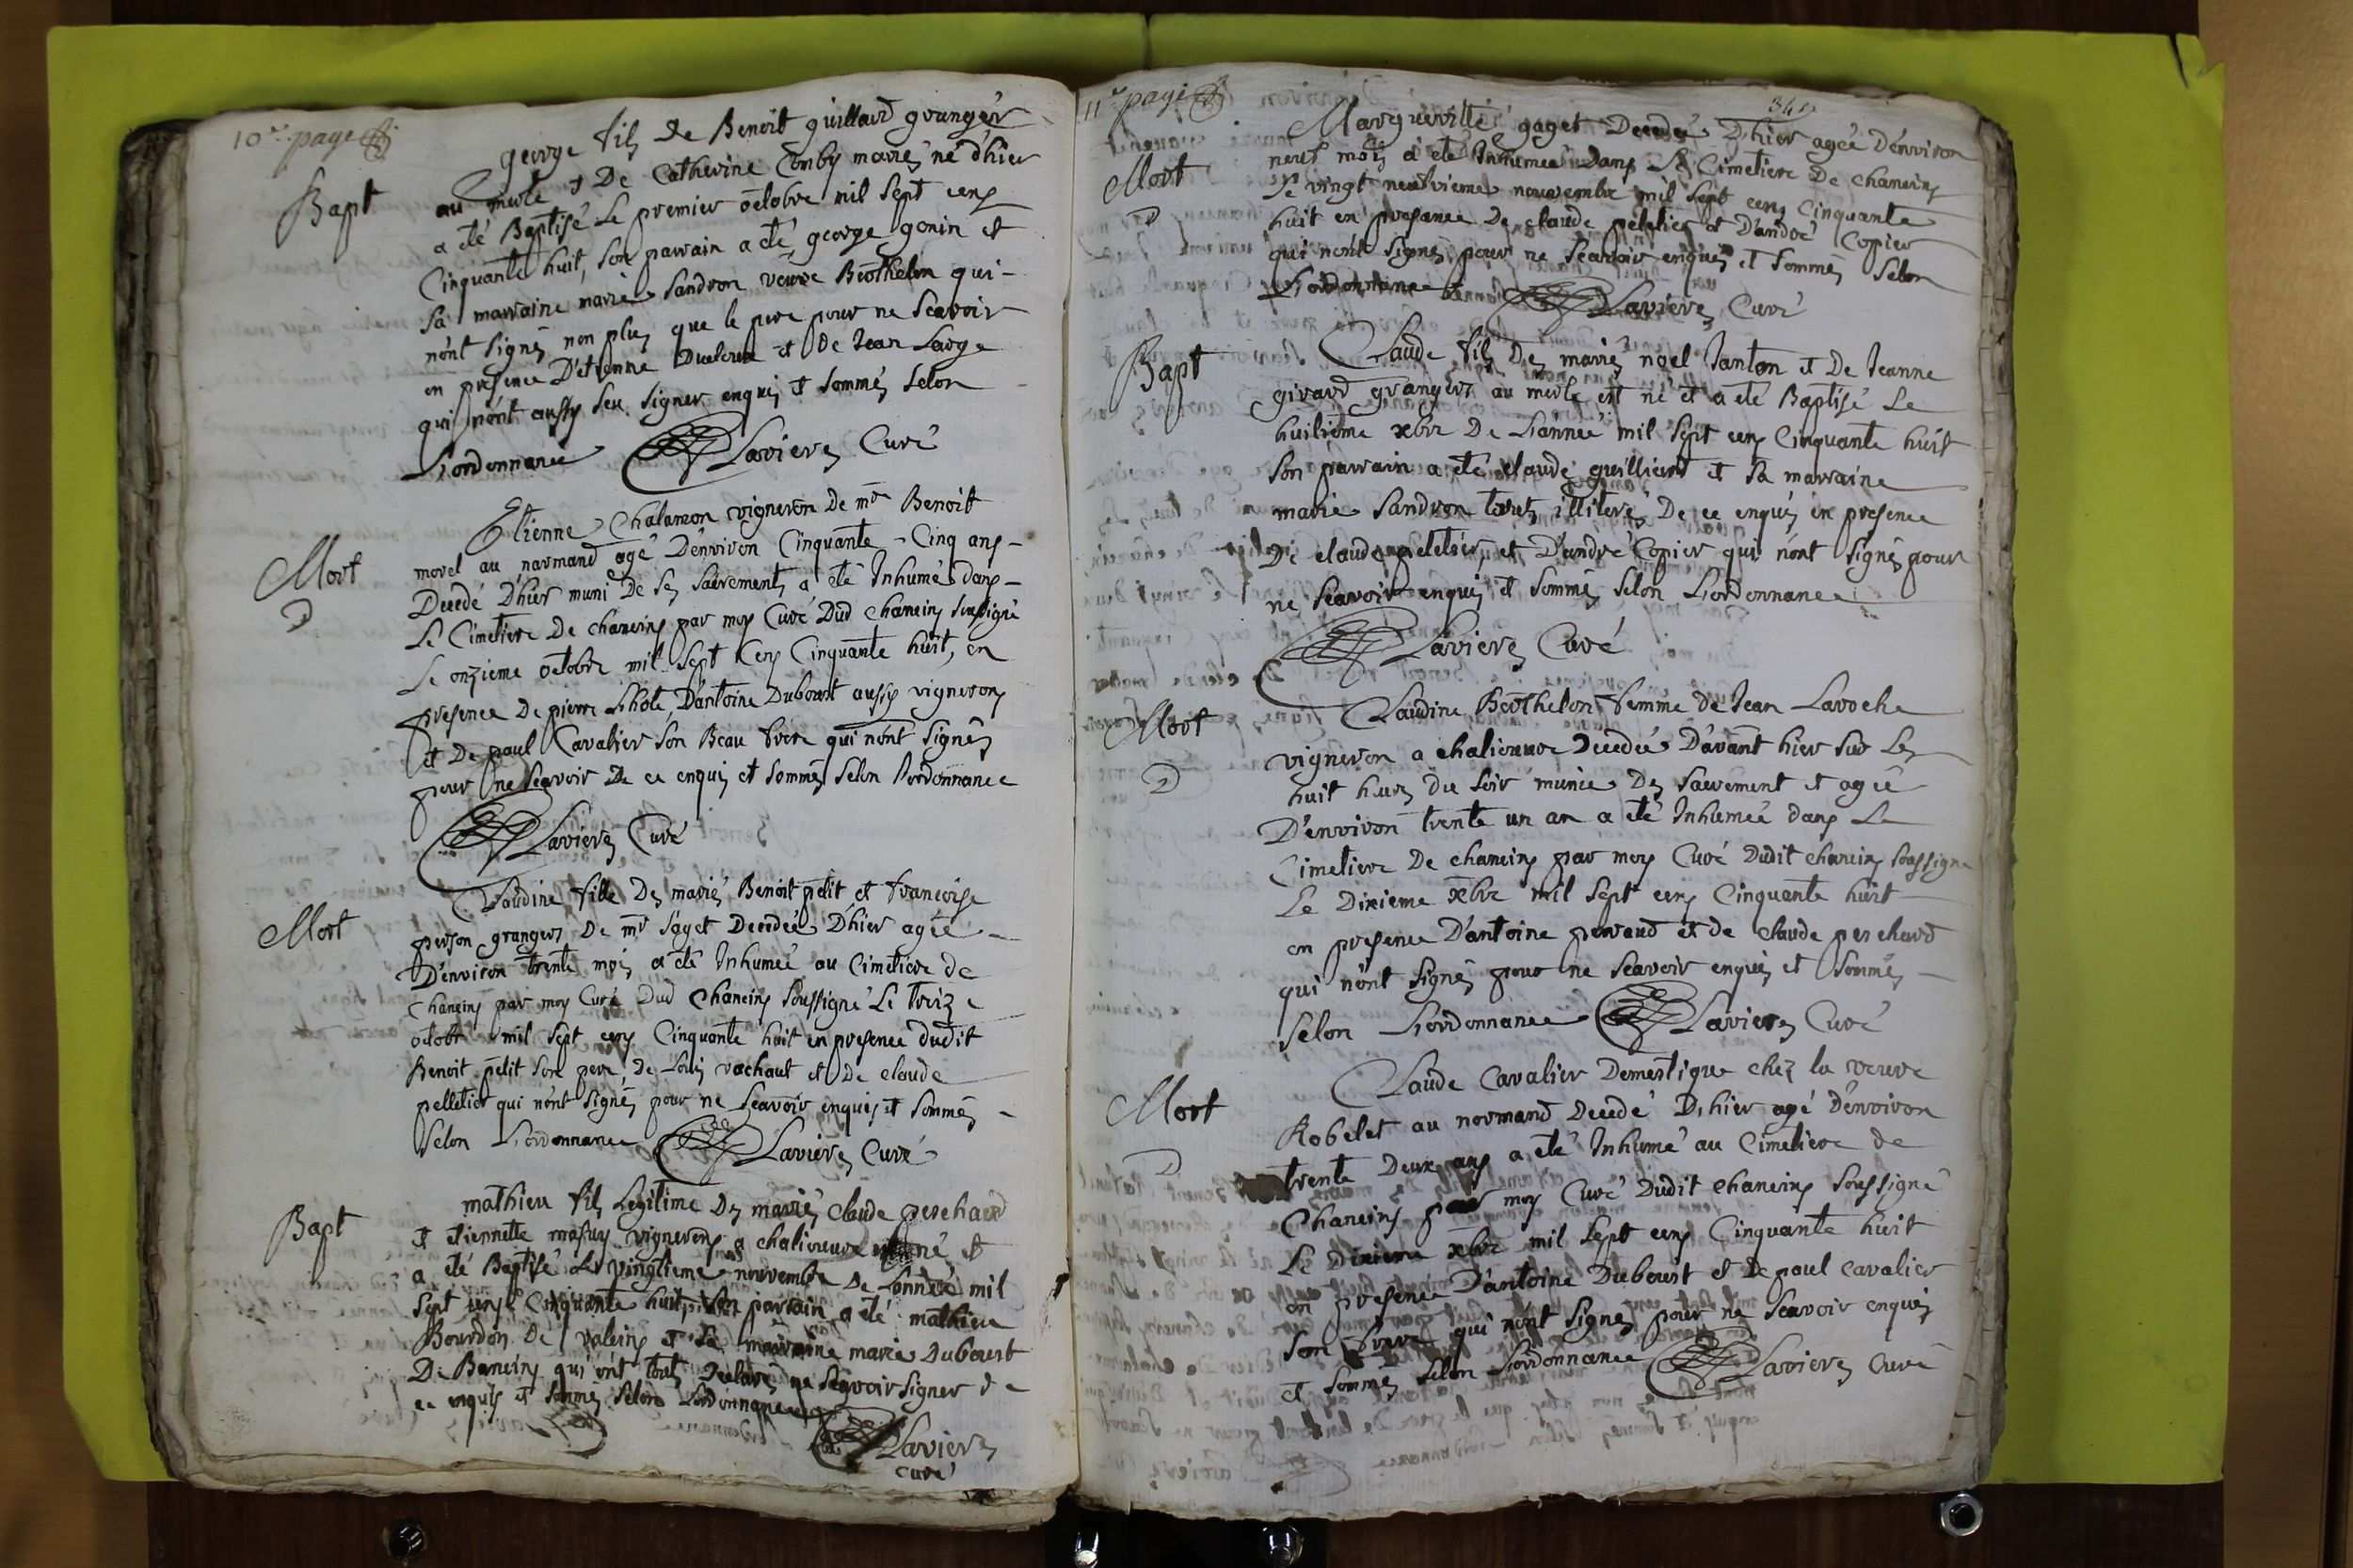 10e page
Bapt
george fils de Benoit guillard granger
au merle et De Catherine Comby mariés né d'hier
a été Baptisé Le premier octobre mil sept cens
Cinquante huit, son parrain a été george gonin et
sa marraine marie Sandron veuve Berthelon qui
n'ont signés non plus que le pere pour ne scavoir
en presence D'etienne et De Jean Large
qui n'ont aussy sceu signer enquis et sommés selon
L'ordonnance Lavieres Curé
Mort
Etienne Chalamon vigneron de mr Benoit
morel au normand agé D'environ Cinquante Cinq ans
Decedé D'hier muni De ses sacrements a été Inhumé dans
Le Cimetiere De chaneins par moy Curé Dud chaneins soussigné
Le onzieme octobre mil sept Cens Cinquante huit, en
presence De pierre Lhote, D'antoine Duboust aussy vignerons
et De paul Cavalier son Beau frere qui n'ont signés
pour ne scavoir De ce enquis et sommés selon l'ordonnance
Lavieres Curé
Mort
Claudine fille Des mariés Benoit petit et francoise
person grangers De mr saget Decedée D'hier agée
D'environ trente mois a été Inhumée au Cimetiere de
Chaneins par moy Curé Dud Chaneins soussigné Le treize
octobre mil sept cens Cinquante huit en presence dudit
Benoit petit son pere, De Louis vachaut et De claude
pelletier qui n'ont signés pour ne scavoir enquis et sommés
selon L'ordonnance Lavieres Curé
Bapt
mathieu fils Legitime Des mariés claude perchard
et etiennette vignerons a chaliouvre né et
a été Baptisé Le vingtieme novembre De L'année mil
sept cens Cinquante huit, son parrain a été mathieu
Bourdon De valeins et sa marraine marie Duboust
De Baneins qui ont tous Declarés ne scavoir signer de
ce enquis et sommés selon L'ordonnance
Lavieres
curé
11e page
Mort
Marguerittte gaget Decedée D'hier agée D'environ
neuf mois a été Inhumée Dans Le Cimetiere De chaneins
Le vingt neufvieme novembre mil sept cens Cinquante
huit en presence De claude peletier et D'andré Copier
qui n'ont signés pour ne scavoir enquis et sommés selon
L'ordonnance Lavieres Curé
Bapt
Claude fils Des mariés noel Janton et De Jeanne
girard grangers au merle est né et a été Baptisé Le
huitieme xbre De L'année mil sept cens Cinquante huit
son parrain a été claude guilliard et sa marraine
marie Sandron tous illiterés De ce enquis en presence
De claude peletier, et D'andré Copier qui n'ont signés pour
ne scavoir enquis et sommés selon L'ordonnance
Lavieres Curé
Mort
Claudine Berthelon femme de Jean Laroche
vigneron a chaliouvre Decedée D'avant hier sur Les
huit heures du soir munie Des sacrement et agée
D'environ trente un an a été Inhumée dans Le
Cimetiere De chaneins par moy Curé Dudit chaneins soussigné
Le Dixieme xbre mil sept cens Cinquante huit
en presence D'antoine peraud et de claude perchard
qui n'ont signés pour ne scavoir enquis et sommés
selon L'ordonnance Lavieres Curé
Mort
Claude Cavalier Domestique chez la veuve
Robelet au normand Decedé D'hier agé D'environ
trente Deux ans a été Inhumé au Cimetiere de
Chaneins par moy Curé Dudit chaneins soussigné
Le Dixieme xbre mil sept cens Cinquante huit
en presence D'antoine Duboust et De paul cavalier
son frere qui n'ont signés pour ne scavoir enquis
et sommés selon L'ordonnance Lavieres Curé